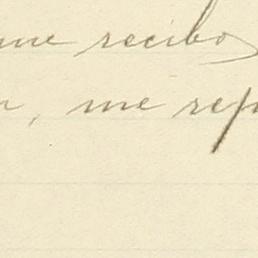 me recibo
, me rep